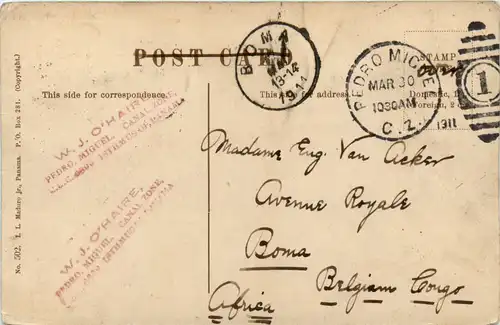 POST CARD
This side for correspondence.
This side for address.
STAMP
Domestic, 1
Foreign, 2
BOMA
13-14
1911
PEDRO MIGUEL
MAR 30
1030AM
C.Z.
1911
1
W. J. O'HAIRE,
PEDRO, MIGUEL, CANAL ZONE,
ISTHMUS OF PANAMA
W. J. O'HAIRE,
PEDRO, MIGUEL, CANAL ZONE,
ISTHMUS OF PANAMA
Madame Eug. Van Acker
Avenue Royale
Boma
Belgian Congo
Africa
No. 502. I. L. Maduro jr., Panama. P. O. Box 281. (Copyright.)